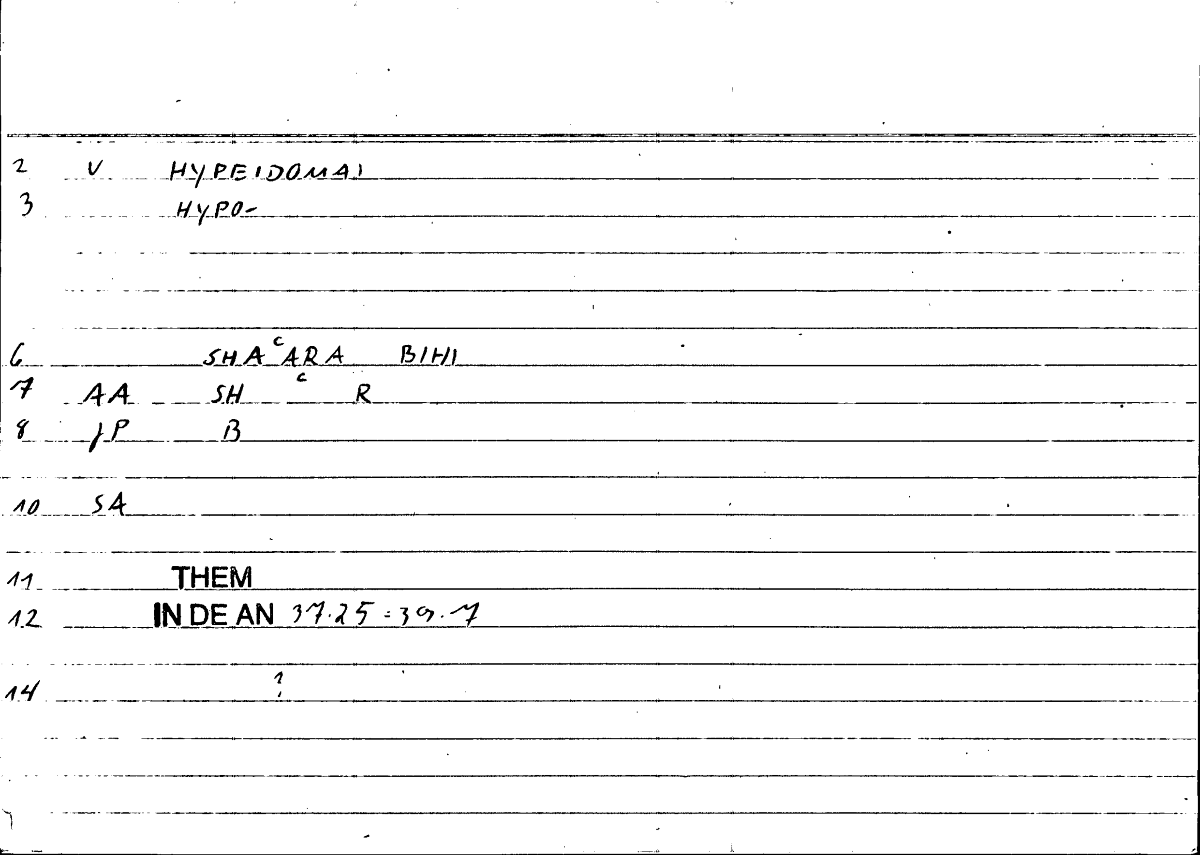 2 V HYPEIDOMAI
3 HYPO-
6 SHAᶜARA BIHI
7 AA SH ᶜ R
8 JP B
10 SA
11 THEM
12 IN DE AN 37.25 = 39.7
14 1